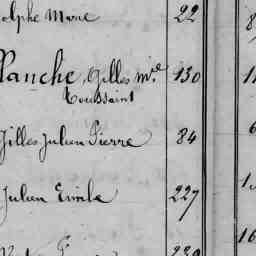 olphe Marie 22
Planche, Gilles Mie 130
Toussaint
Gilles Julien Pierre 84
Julien Emile 227